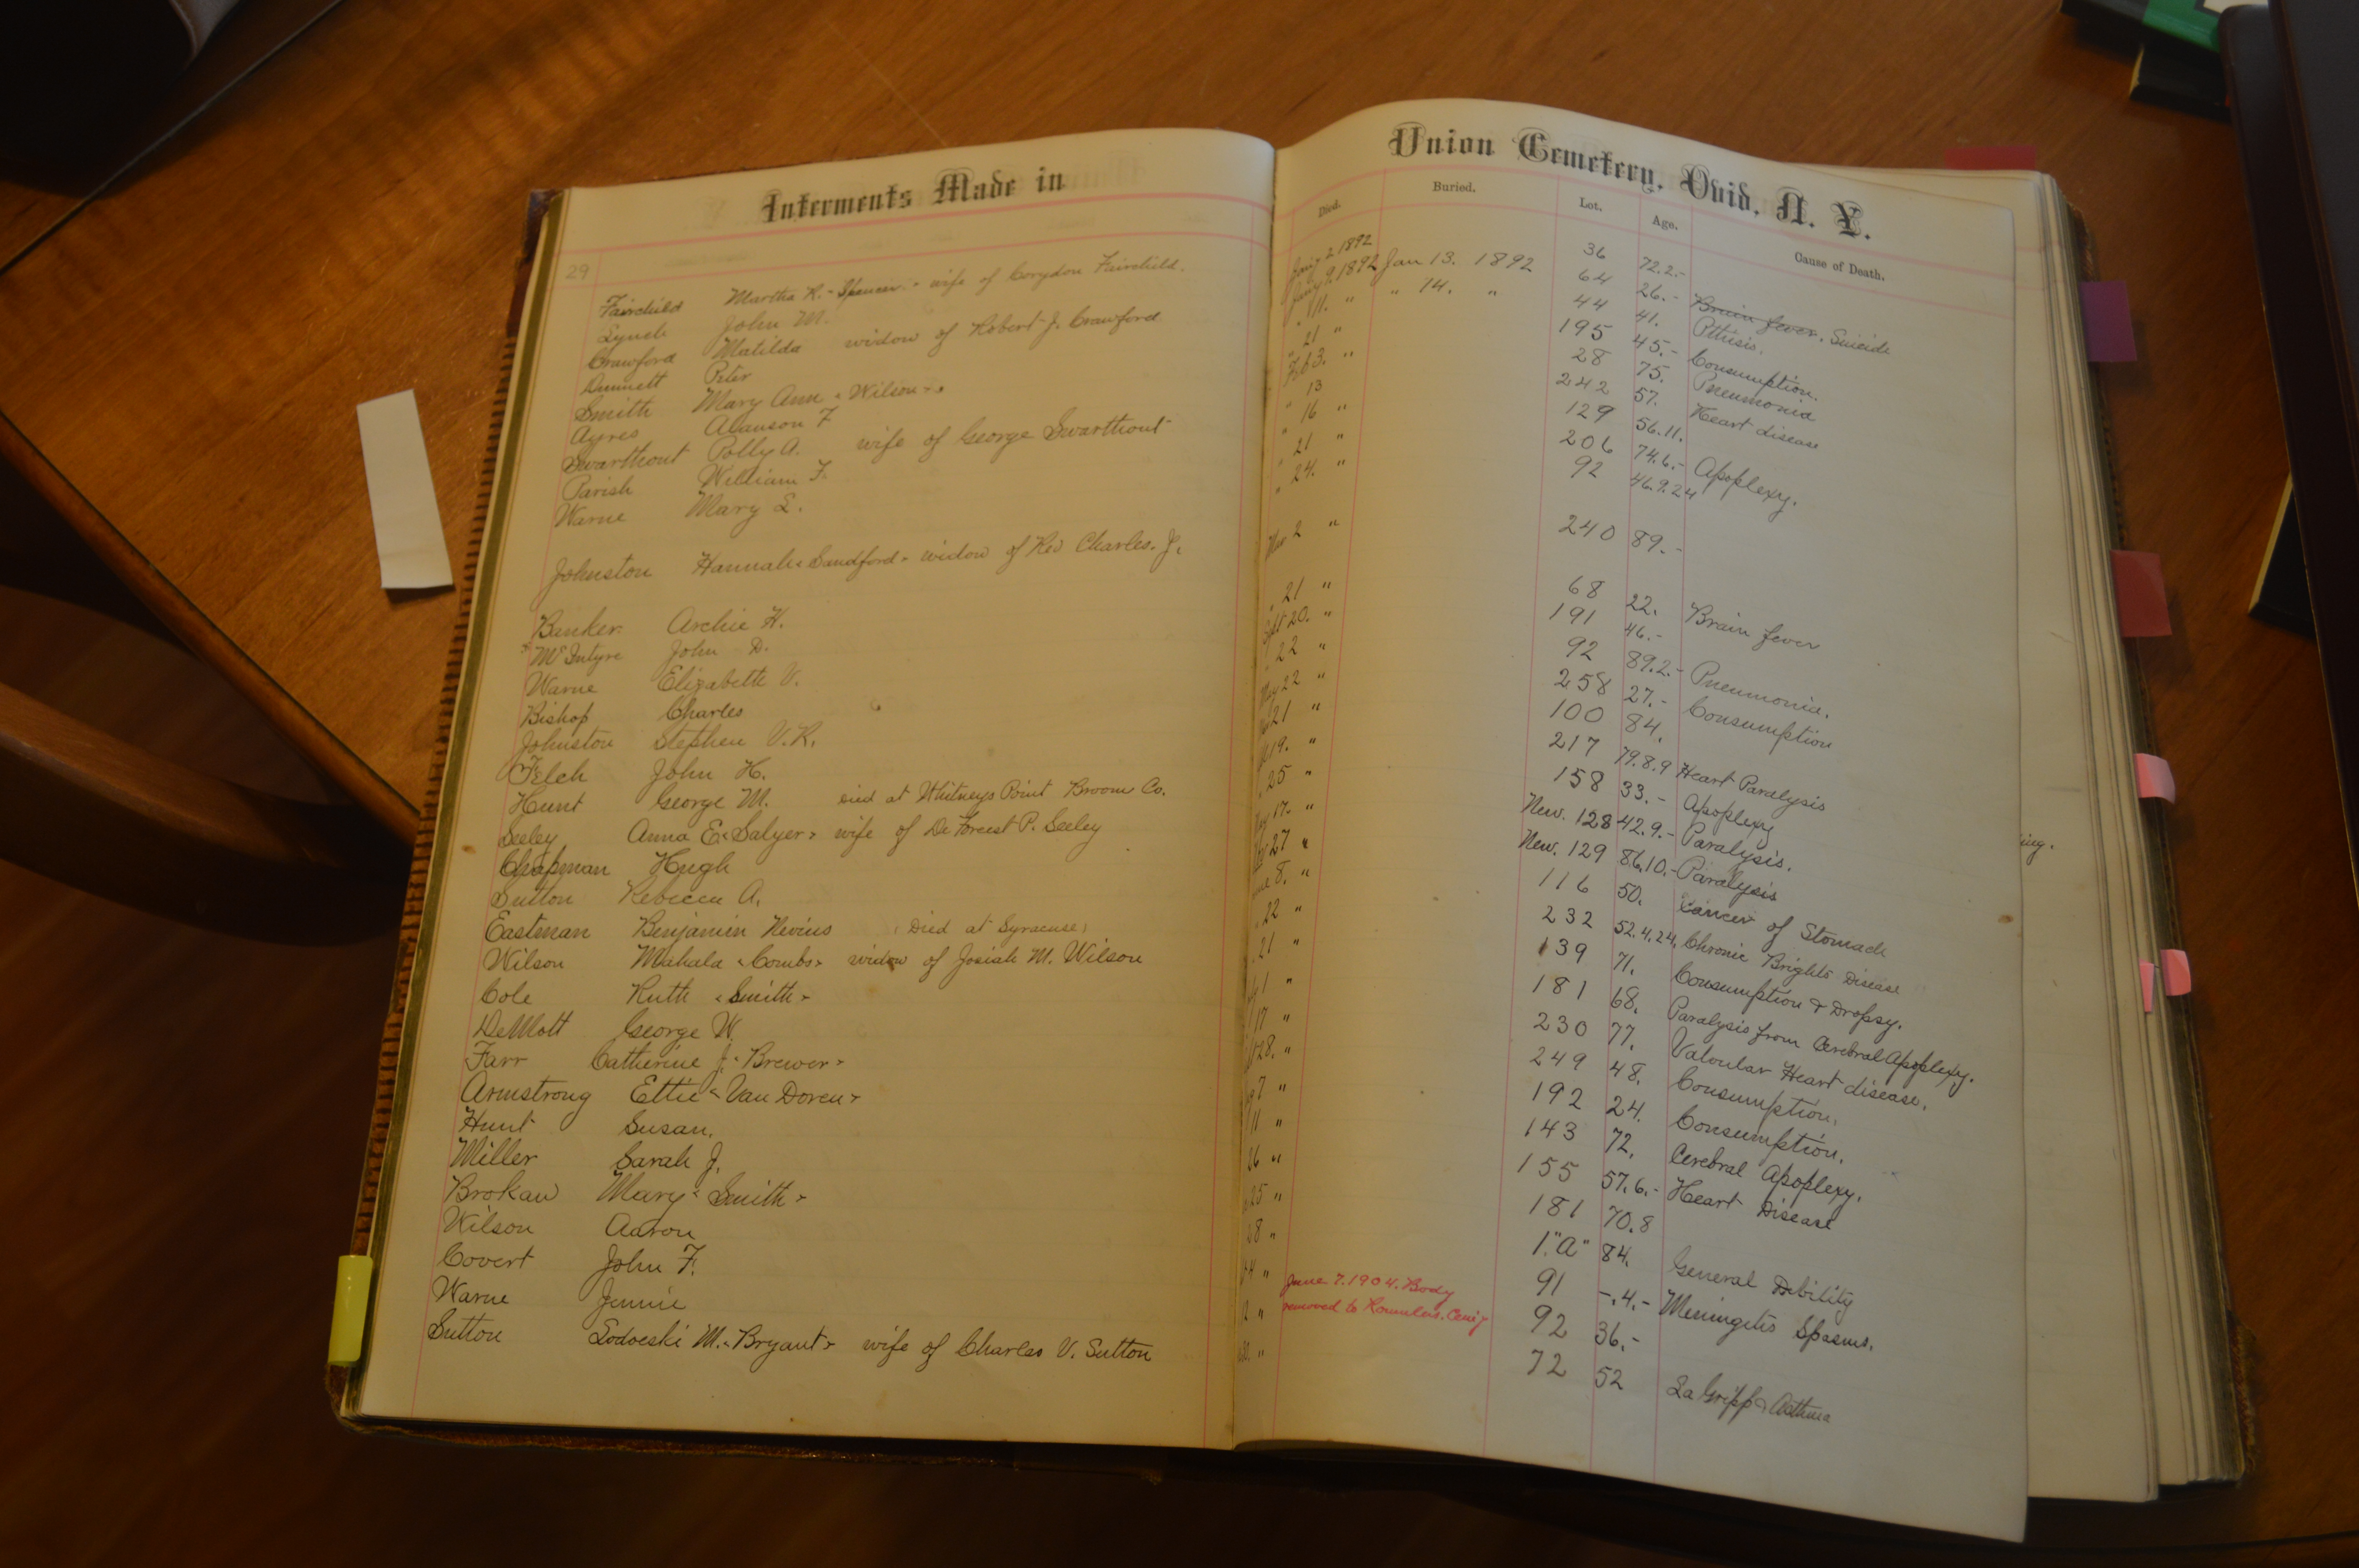 Interments Made in
29
Fairchild Martha R. - Spencer - wife of Corydon Fairchild.
Lynch John M.
Crawford Matilda widow of Robert J. Crawford
Dunnett Peter
Smith Mary Ann - Wilson -
Ayres Alanson F
Swarthout Polly A. wife of George Swarthout
Parish William F.
Warne Mary E.
Johnston Hannah - Sandford - widow of Rev Charles. J.
Banker. Archie H.
McIntyre John D.
Warne Elizabeth V.
Bishop Charles
Johnston Stephen V.R.
Felch John H.
Hunt George M. died at Whitneys Point Broom Co.
Seeley Anna E. - Salyer - wife of De Forest P. Seeley
Chapman Hugh
Sutton Rebecca A.
Eastman Benjamin Nevius (Died at Syracuse)
Wilson Mahala - Combs - widow of Josiah M. Wilson
Cole Ruth - Smith -
DeMott George W.
Farr Catherine J. - Brewer -
Armstrong Ettie - Van Doren -
Hunt Susan.
Miller Sarah J.
Brokaw Mary - Smith -
Wilson Aaron
Covert John F.
Warne Jennie
Sutton Lodoeski M. - Bryant - wife of Charles V. Sutton
Union Cemetery, Ovid, N. Y.
Died. Buried. Lot. Age. Cause of Death.
2 1892 36 72.2.- Brain fever. Suicide
9 1892 Jan 13. 1892 64 26.- Pthisis.
" 11. " " 14. " 44 41. Consumption.
" 21 " 195 45.- Pneumonia
Feb 3. " 28 75. Heart disease
" 13 242 57.
" 16 " 129 56.11. Apoplexy.
" 21 " 206 74.6.-
" 24. " 92 46.9.24
Mar 2 " 240 89.-
" 21 " 68 22. Brain fever
Sept 20. " 191 46.-
" 22 " 92 89.2.- Pneumonia.
May 22 " 258 27.- Consumption
21 " 100 84.
19. " 217 79.8.9 Heart Paralysis
25 " 158 33.- Apoplexy
17. " New. 128 42.9.- Paralysis.
27 " New. 129 86.10.- Paralysis
8. " 116 50. Cancer of Stomach
22 " 232 52.4.24. Chronic Brights Disease
21 " 139 71. Consumption & Dropsy.
1 " 181 68. Paralysis from Cerebral Apoplexy.
17 " 230 77. Valvular Heart disease.
28. " 249 48. Consumption.
7 " 192 24. Consumption.
11 " 143 72. Cerebral Apoplexy.
26 " 155 57.6.- Heart Disease
25 " 181 70.8
28 " 1."A" 84. General Debility
4 " 91 -.4.- Meningitis Spasms.
June 7. 1904. Body
2 " removed to Romulus. Cem'y 92 36.-
" 72 52 La Gripp & Asthma
ing.